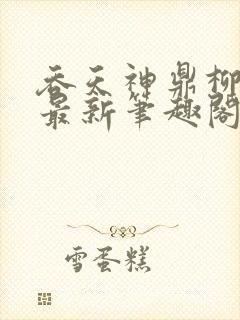 吞天神鼎柳
最新笔趣阁
雪蛋糕